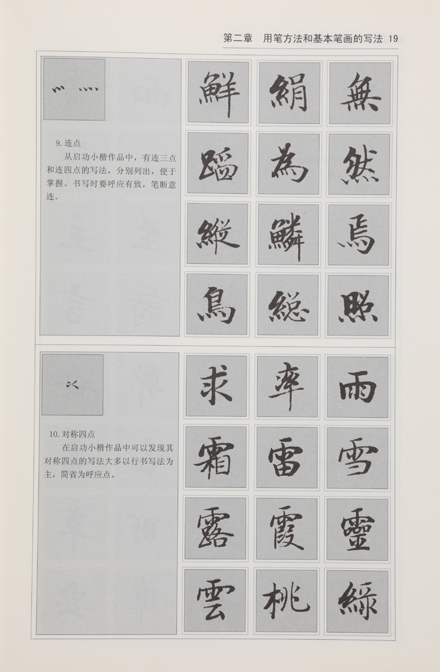 第二章 用笔方法和基本笔画的写法 19
9.连点
从启功小楷作品中，有连三点
和连四点的写法，分别列出，便于
掌握。书写时要呼应有致，笔断意
连。
鲜 絹 無
蹈 為 然
縱 鱗 焉
鳥 総 照
10.对称四点
在启功小楷作品中可以发现其
对称四点的写法大多以行书写法为
主，简省为呼应点。
求 率 雨
霜 雷 雪
露 霞 靈
雲 桃 綠